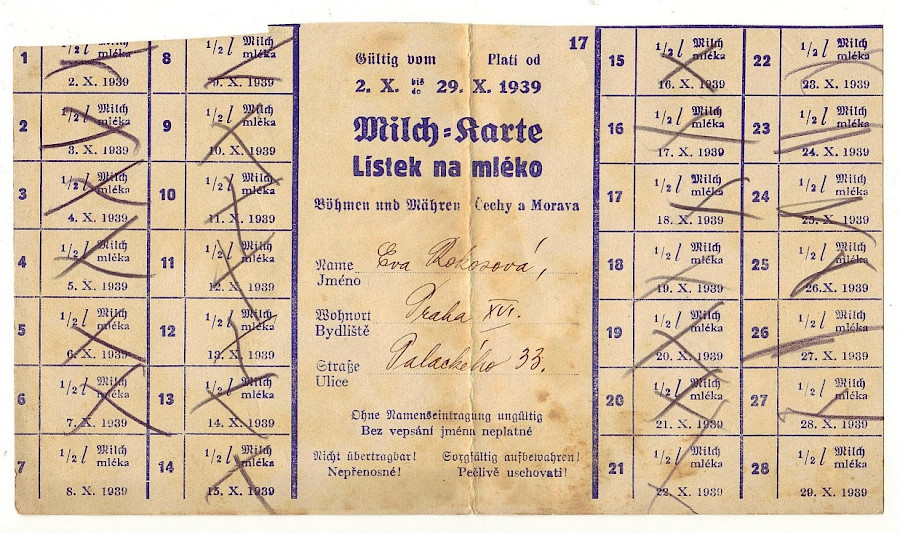 1 1/2 l Milch mléka 2. X. 1939
2 1/2 l Milch mléka 3. X. 1939
3 1/2 l Milch mléka 4. X. 1939
4 1/2 l Milch mléka 5. X. 1939
5 1/2 l Milch mléka 6. X. 1939
6 1/2 l Milch mléka 7. X. 1939
7 1/2 l Milch mléka 8. X. 1939
8 1/2 l Milch mléka 9. X. 1939
9 1/2 l Milch mléka 10. X. 1939
10 1/2 l Milch mléka 11. X. 1939
11 1/2 l Milch mléka 12. X. 1939
12 1/2 l Milch mléka 13. X. 1939
13 1/2 l Milch mléka 14. X. 1939
14 1/2 l Milch mléka 15. X. 1939
17
Gültig vom Platí od
2. X. bis do 29. X. 1939
Milch-Karte
Lístek na mléko
Böhmen und Mähren Čechy a Morava
Name Eva Rokosová,
Jméno
Wohnort Praha XVI.
Bydliště
Straße Palackého 33.
Ulice
Ohne Namenseintragung ungültig
Bez vepsání jména neplatné
Nicht übertragbar! Sorgfältig aufbewahren!
Nepřenosné! Pečlivě uschovati!
15 1/2 l Milch mléka 16. X. 1939
16 1/2 l Milch mléka 17. X. 1939
17 1/2 l Milch mléka 18. X. 1939
18 1/2 l Milch mléka 19. X. 1939
19 1/2 l Milch mléka 20. X. 1939
20 1/2 l Milch mléka 21. X. 1939
21 1/2 l Milch mléka 22. X. 1939
22 1/2 l Milch mléka 23. X. 1939
23 1/2 l Milch mléka 24. X. 1939
24 1/2 l Milch mléka 25. X. 1939
25 1/2 l Milch mléka 26.X. 1939
26 1/2 l Milch mléka 27. X. 1939
27 1/2 l Milch mléka 28. X. 1939
28 1/2 l Milch mléka 29. X. 1939